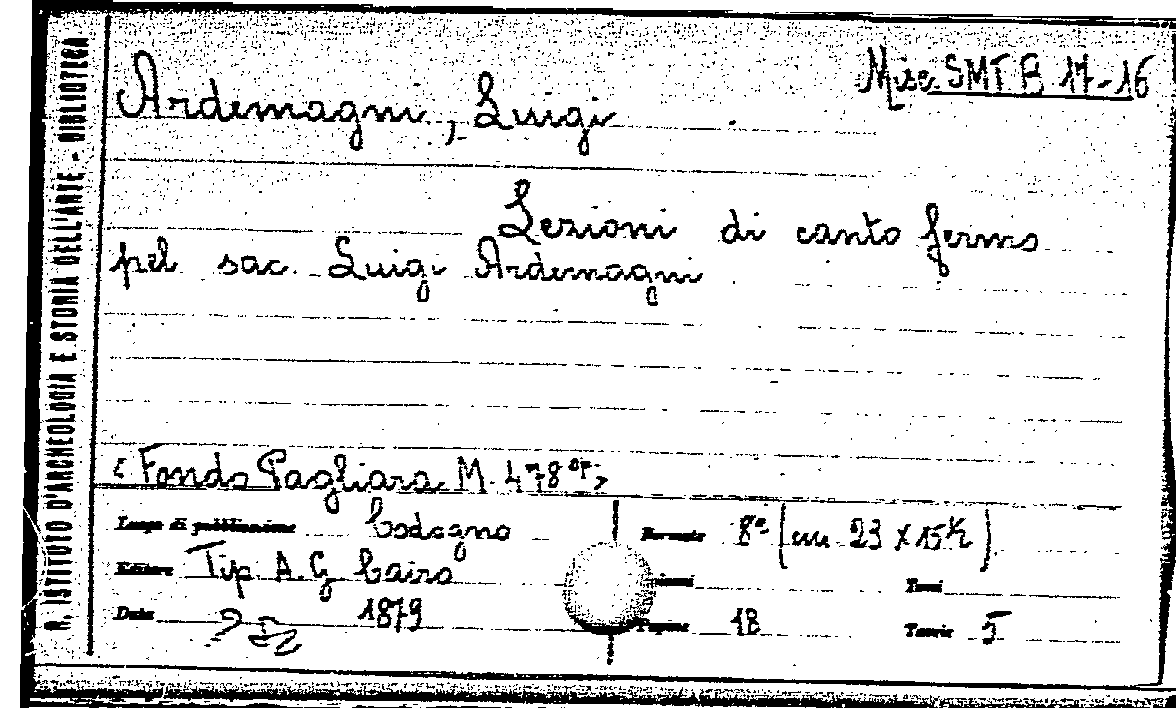 R. ISTITUTO D'ARCHEOLOGIA E STORIA DELL'ARTE - BIBLIOTECA
Misc. SMT B 17-16
Ardemagni, Luigi
Lezioni di canto fermo
pel sac. Luigi Ardemagni
< Fondo Pagliara M. 478 >
Luogo di pubblicazione Codogno
Formato 8° (cm 23 x 15½)
Editore Tip. A. G. Cairo
Tomi
Data 1879
Pagine 18
Tavole 5